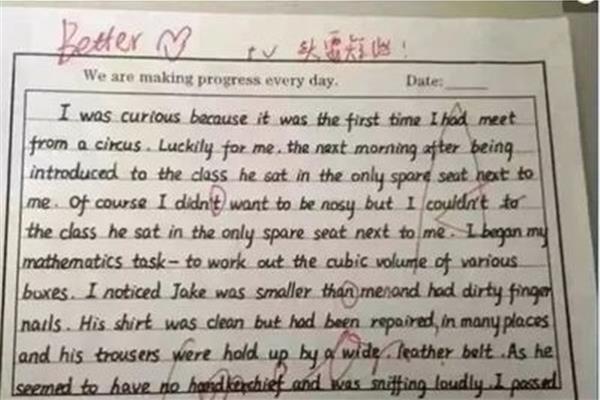 Better
We are making progress every day. Date:
I was curious because it was the first time I had meet
from a circus. Luckily for me. the next morning after being
introduced to the class he sat in the only spare seat next to
me. Of course I didn't want to be nosy but I couldn't to
the class he sat in the only spare seat next to me. I began my
mathematics task - to work out the cubic volume of various
boxes. I noticed Jake was smaller than me and had dirty finger
nails. His shirt was clean but had been repaired, in many places
and his trousers were hold up by a wide. leather belt. As he
seemed to have no handkerchief and was sniffing loudly. I passed